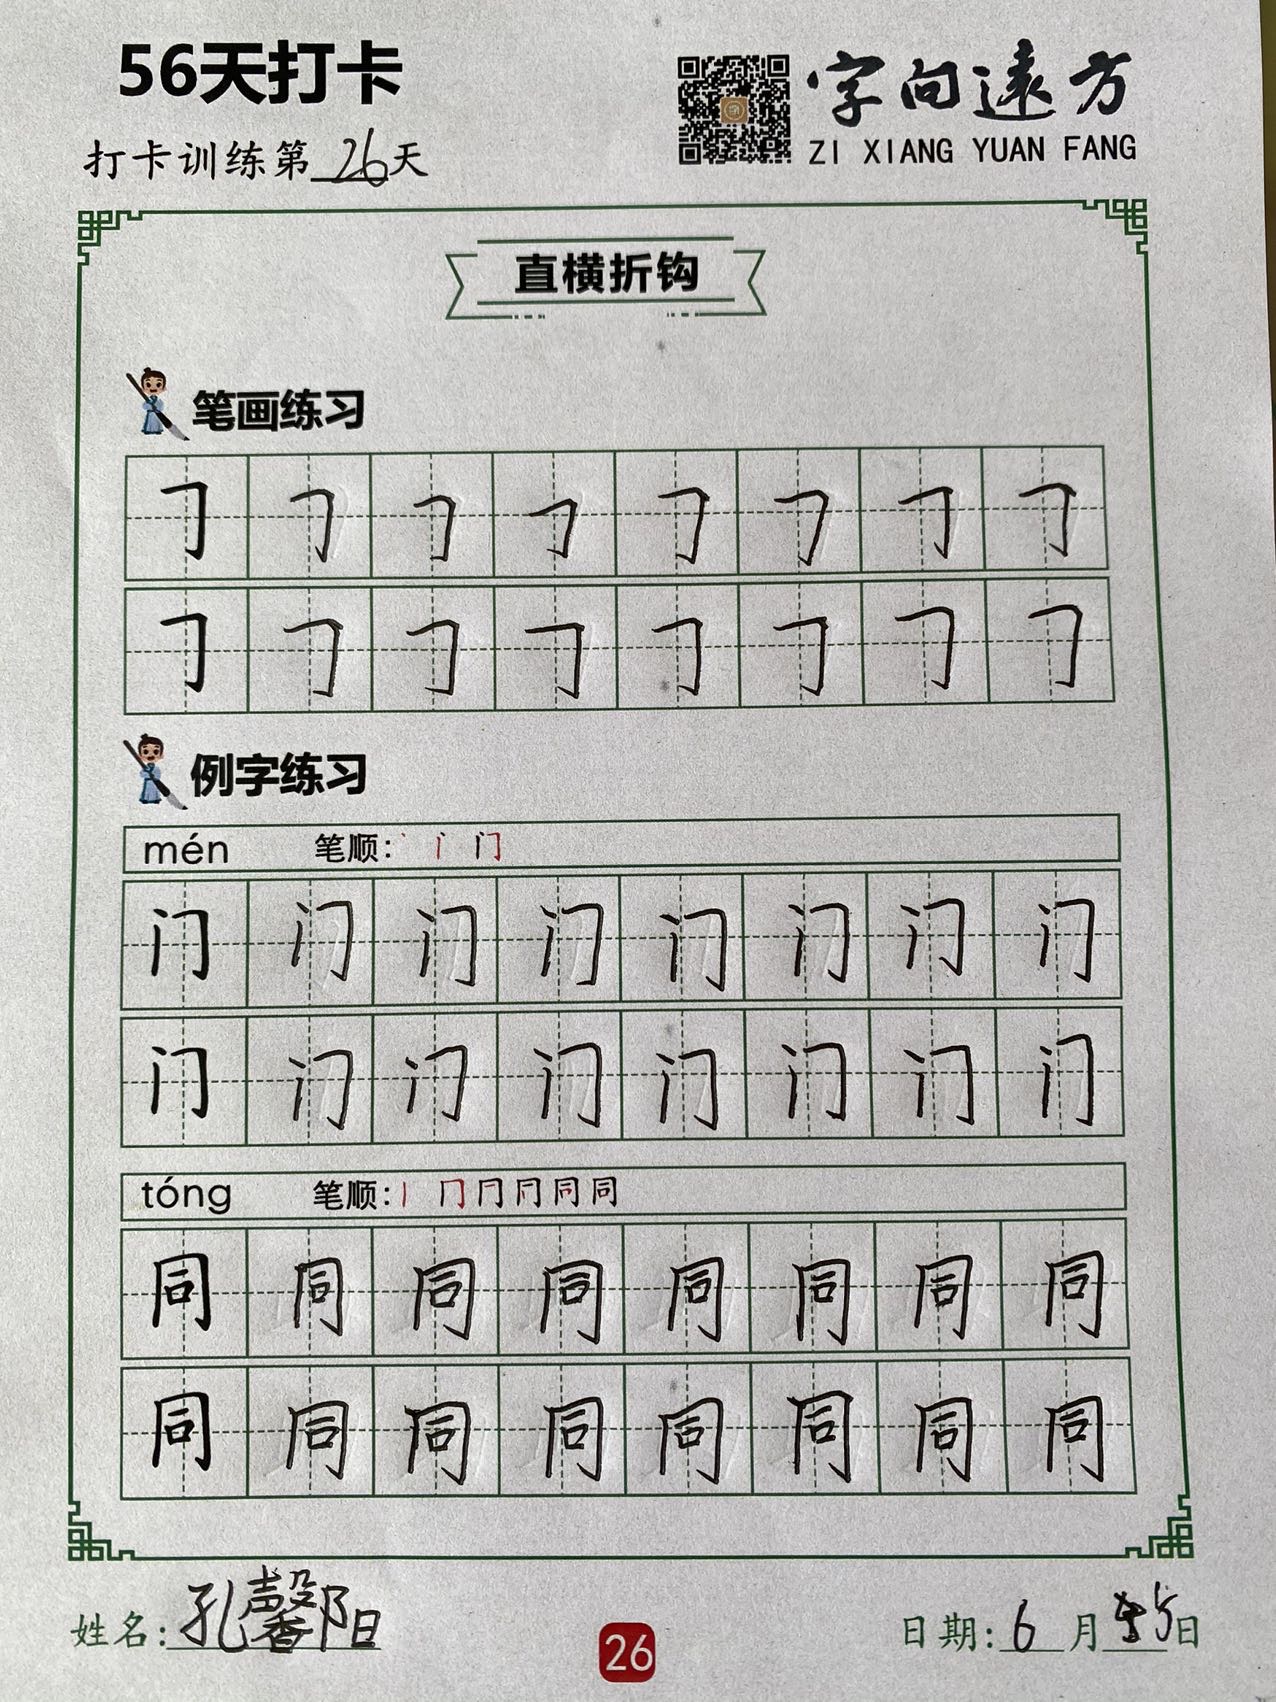 56天打卡
字向远方
打卡训练第26天
ZI XIANG YUAN FANG
直横折钩
笔画练习
𠃌 𠃌 𠃌 𠃌 𠃌 𠃌 𠃌 𠃌
𠃌 𠃌 𠃌 𠃌 𠃌 𠃌 𠃌 𠃌
例字练习
mén 笔顺: 丶 门
门 门 门 门 门 门 门 门
门 门 门 门 门 门 门 门
tóng 笔顺: 丨 冂 同
同 同 同 同 同 同 同 同
同 同 同 同 同 同 同 同
姓名: 孔馨阳
26
日期: 6月 5日